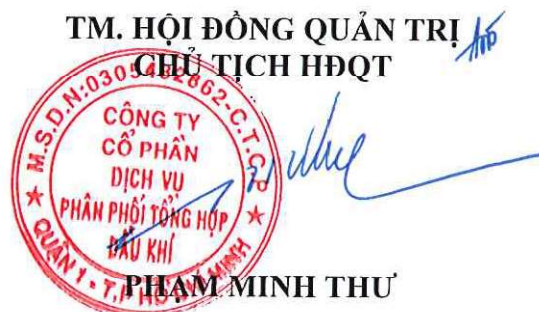 TM. HỘI ĐỒNG QUẢN TRỊ
CHỦ TỊCH HĐQT
M.S.D.N:0305482862-C.T.C.P
CÔNG TY
CỔ PHẦN
DỊCH VỤ
PHÂN PHỐI TỔNG HỢP
DẦU KHÍ
QUẬN 1 - T.P HỒ CHÍ MINH
PHẠM MINH THƯ